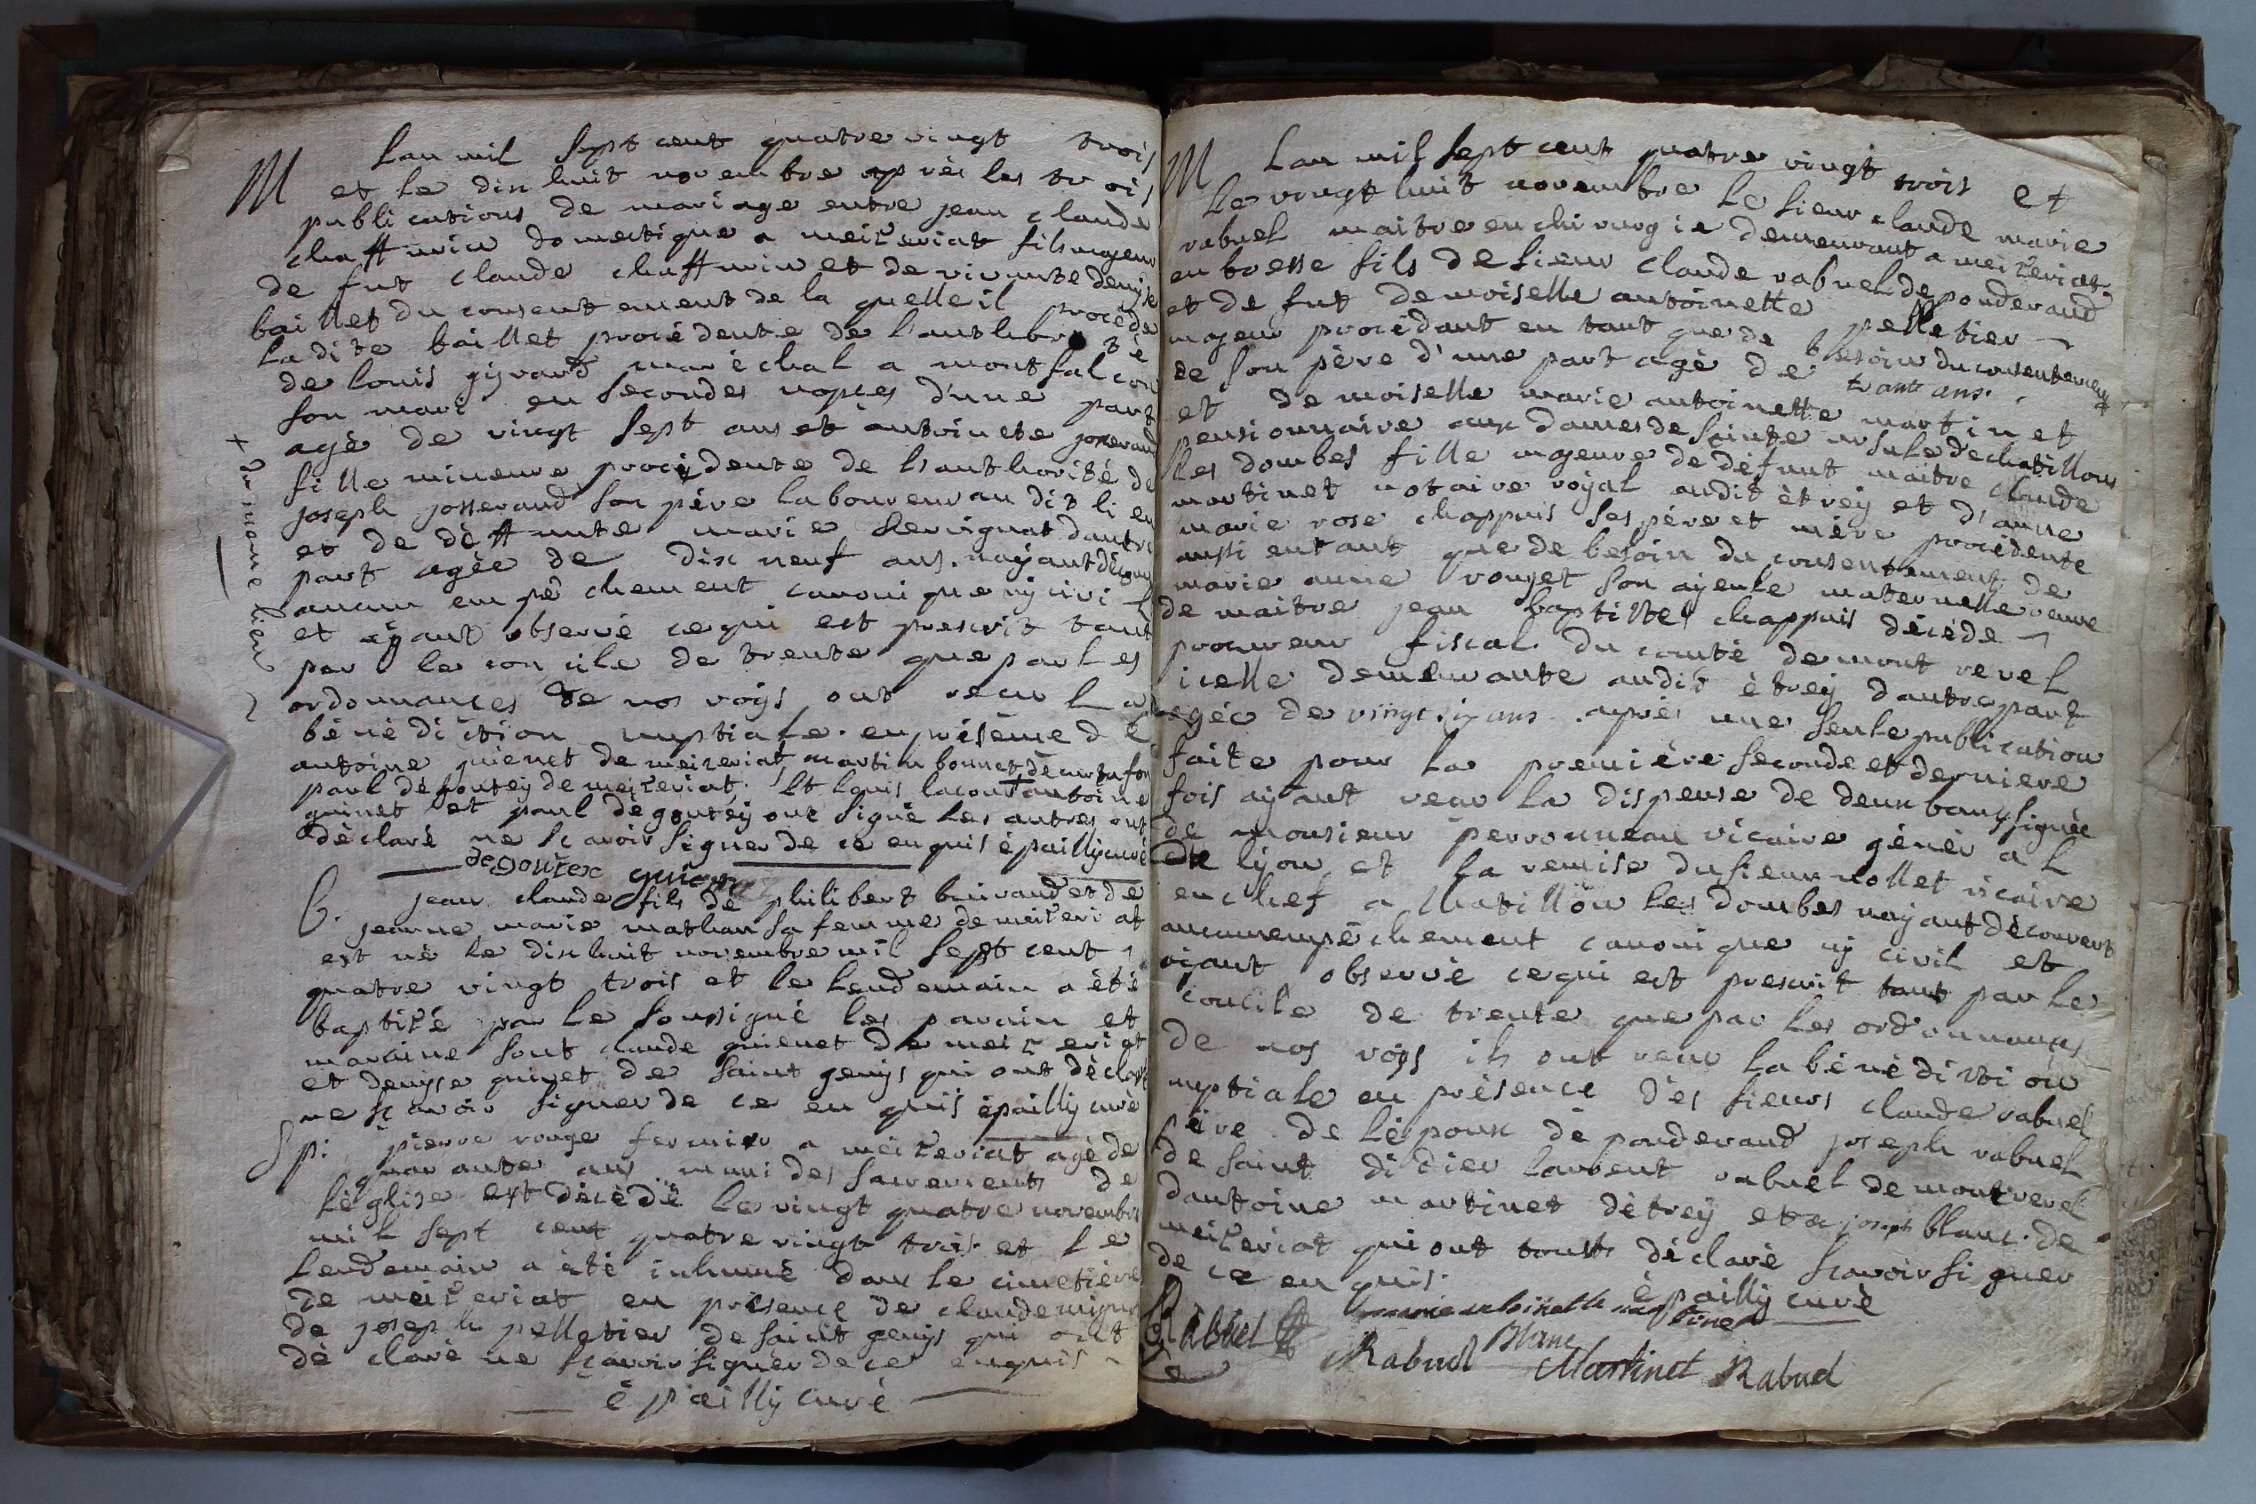 M Lan mil Sept cent quatre vingt trois
et le dix huit novembre après les trois
publications de mariage entre jean claude
domestique a meizeriat fils majeur
de fut claude et de vivante denise
baillet du consentement de la quelle il procède
Ladite baillet procédente de l'authorité
de louis girard maréchal a montfalcon
Son mari en secondes nopces d'une part
agé de vingt Sept ans et antoinete josserand
fille mineure procédente de l'authorité de
joseph josserand Son père laboureur au dit lieu
et de défunte marie d'autre
part agée de dix neuf ans. nayant découvert
aucun empêchement canonique ny civil
et ayant observé ce qui est prescrit tant
par le concile de trente que par les
ordonnances de nos roys ont recu la
bénédiction nuptiale. en présence de
antoine guienet de meizeriat martin bonnet
paul dégoutey de meizeriat. Et louis lacour + antoine
guinet et paul dégoutéy ont signé les autres ont
déclaré ne scavoir signer de ce enquis épailly curé
degoutex guienet
+ du meme lieu
b. jean claude fils de philibert buirand et de
jeanne marie mathan sa femme de meizeriat
est né le dix huit novembre mil Sept cent
quatre vingt trois et le lendemain a été
baptizé par le Soussigné les parain et
maraine Sont claude guienet de meizeriat
et denyse guinet de Saint genys qui ont déclaré
ne scavoir signer de ce en quis épailly curé
Spi. pierre rouge fermier a meizeriat agé de
quarante ans muni des Sacrements de
l'église est décédé le vingt quatre novembre
mil Sept cent quatre vingt trois. et le
Lendemain a été inhumé dans le cimetière
de meizeriat en présence de claude
de joseph pelletier de Saint genys qui ont
déclaré ne scavoir signer de ce enquis
épailly curé
M Lan mil Sept cent quatre vingt trois et
le vingt huit novembre le Sieur claude marie
rabuel maitre en chirurgie demeurant a meizeriat
en bresse fils de Sieur claude rabuel de ponderand
et de fut demoiselle antoinette pelletier
majeur procédant en tant que de besoin du consentement
de Son père d'une part agé de trante ans.
et demoiselle marie antoinette martinet
pensionnaire aux dames de Sainte ursule de chatillon
les dombes fille majeure de défunt maitre claude
martinet notaire royal audit étrey et d'anne
marie rose chappuis Ses père et mère procédente
aussi entant que de besoin du consentement de
marie anne rouget Son ayeule maternelle veuve
de maitre jean baptiste chappuis décédé
procureur fiscal. du comté de mont revel
icelle demeurante audit étrey d'autre part
agée de vingt six ans. après une Seule publication
faite pour la première Seconde et derniere
fois ayant recu la dispense de deux bans signée
de monsieur perronneau vicaire général
de lyon et la remise du Sieur nollet vicaire
en chef a chatillon les dombes nayant découvert
aucun empêchement canonique ny civil et
ayant observé ce qui est prescrit tant par le
concile de trente que par les ordonnances
de nos roys ils ont recu la bénédiction
nuptiale en présence des Sieurs claude rabuel
père de l'époux de ponderand joseph rabuel
de Saint didier laurent rabuel de montrevel
dantoine martinet détrey et de joseph blanc. de
meizeriat qui ont tous déclaré Scavoir signer
de ce en quis. épailly curé
Rabuel marie antoinette martinet
Rabuel Blanc Martinet Rabuel